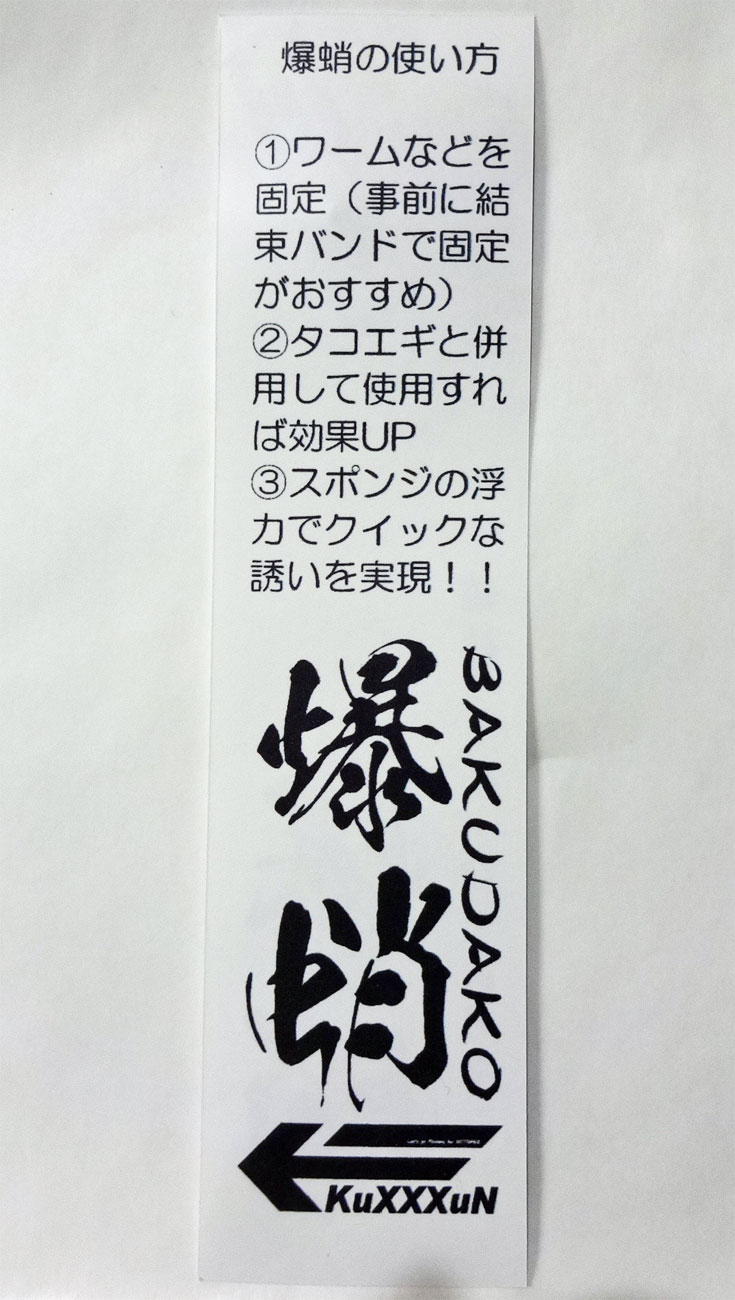 爆蛸の使い方
①ワームなどを
固定（事前に結
束バンドで固定
がおすすめ）
②タコエギと併
用して使用すれ
ば効果UP
③スポンジの浮
力でクイックな
誘いを実現！！
爆蛸
BAKUDAKO
KuXXXuN